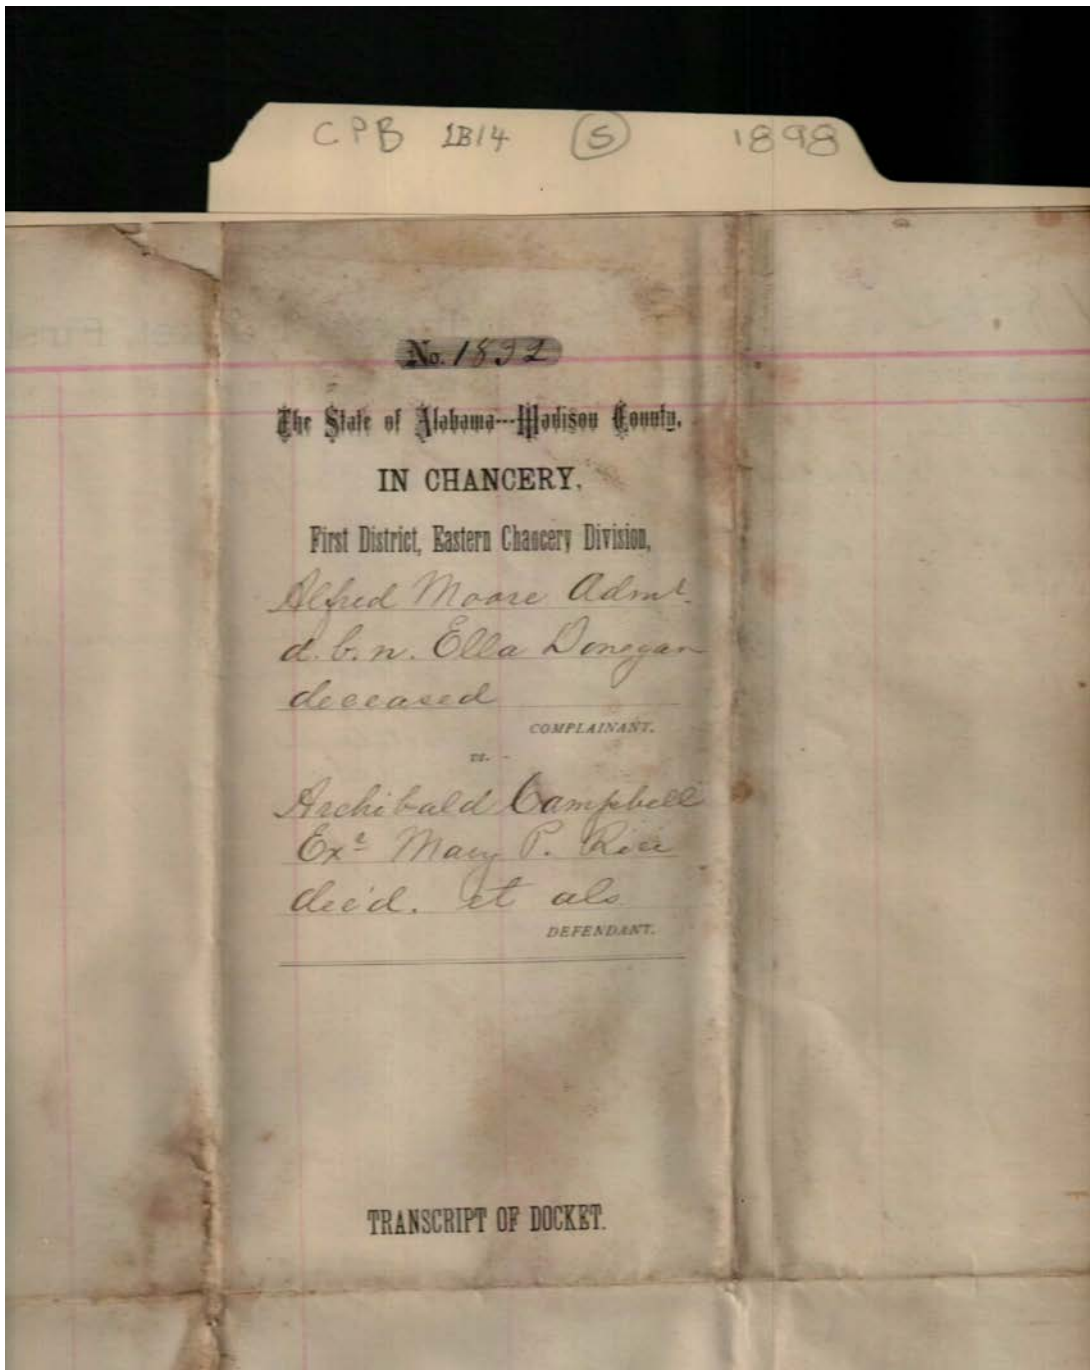 CPB 1B14 (5) 1898
No. 1832
The State of Alabama---Madison County,
IN CHANCERY,
First District, Eastern Chancery Division,
Alfred Moore Admr.
d. b. n. Ella Donegan
deceased
COMPLAINANT.
vs.
Archibald Campbell
Exr Mary P. Rice
dec'd. et als
DEFENDANT.
TRANSCRIPT OF DOCKET.